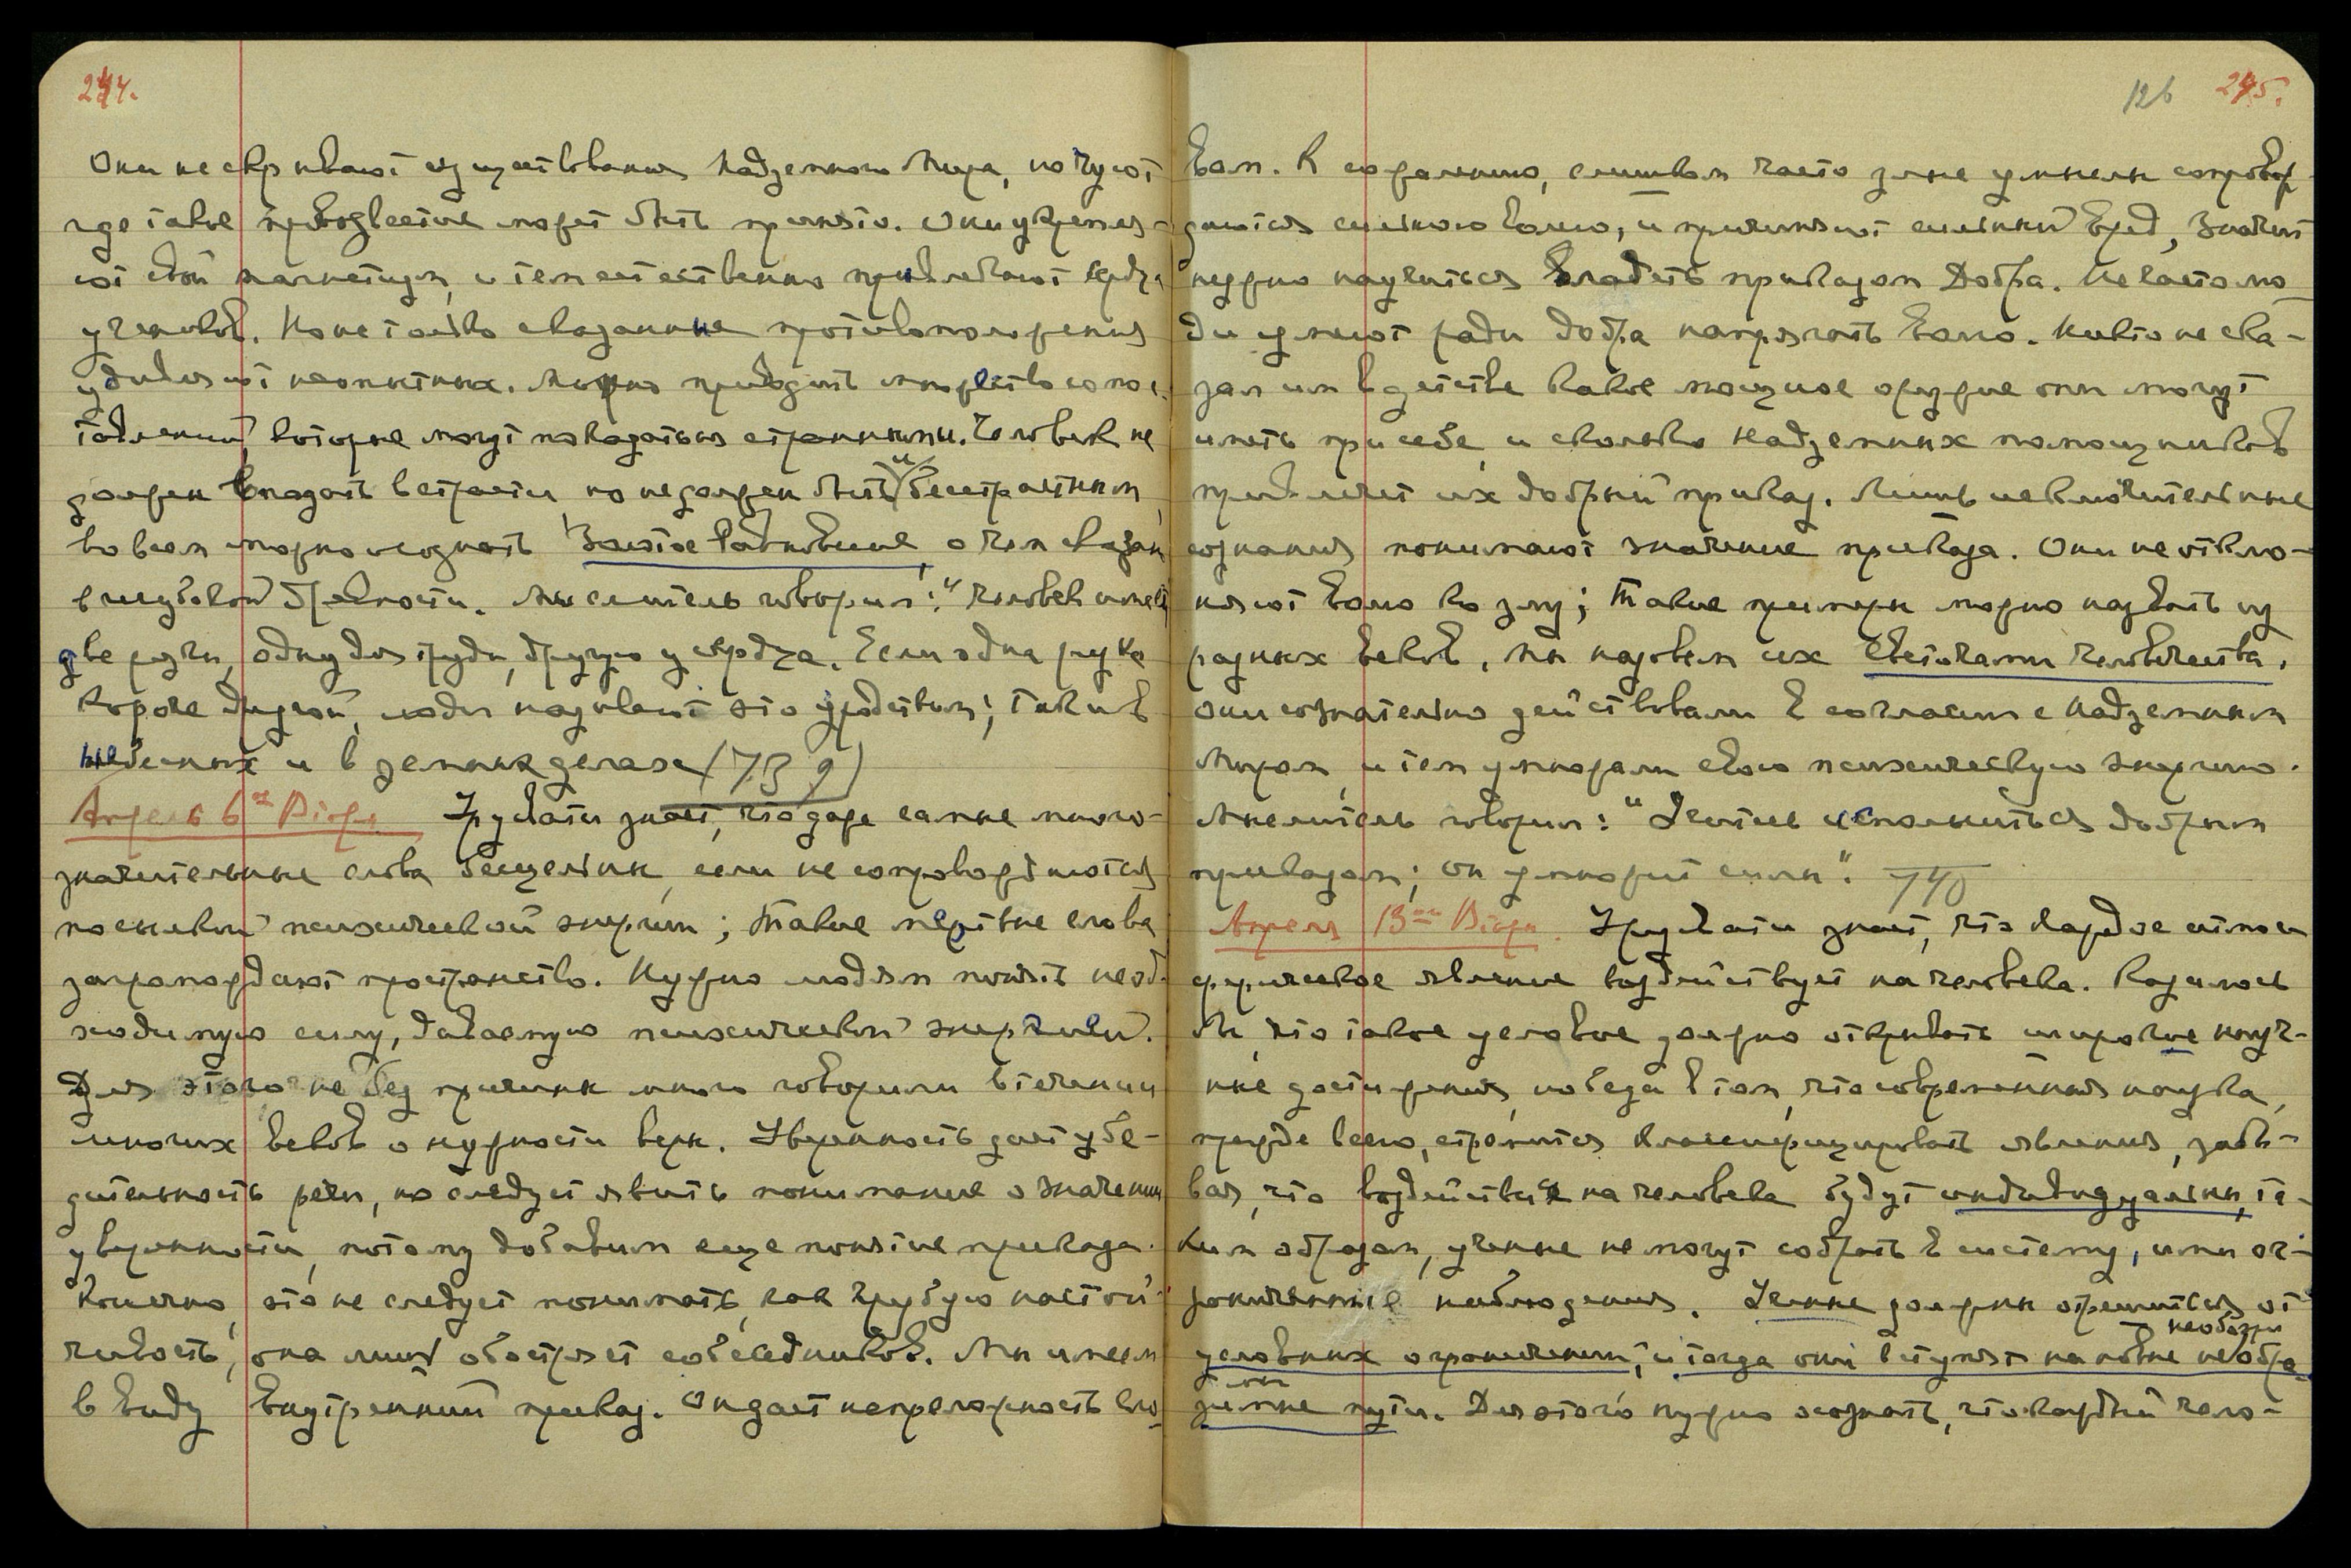 244.
Они не скрывают существования Надземного Мира, но чуют
где такое провозвестие может быть принято. Они укрепля-
ют свой магнетизм, и тем естественно привлекают сердца
учеников. Но не только сказанные противоположения
удивляют неопытных. Можно приводить множество сопос-
тавлений, которые могут показаться странными. Человек не
должен впадать в страсти, но не должен быть и бесстрастным,
во всем можно осознать Золотое Равновесие, о чем сказано
в глубокой древности. Мыслитель говорил: "Человек имеет
две руки, одну для груди, другую у сердца. Если одна рука
короче другой, люди называют это уродством; так и в
небесных и в земных делах (739)
Апрель 6ое Вторн Урусвати знает, что даже самые много-
значительные слова бесцельны, если не сопровождаются
посылкой психической энергии; такие мертвые слова
загромождают пространство. Нужно людям понять необ-
ходимую силу, даваемую психической энергией.
Для этого не без причины много говорили в течении
многих веков о нужности веры. Уверенность дает убе-
дительность речи, но следует явить понимание о значении
уверенности, потому добавим еще понятие приказа.
Конечно, это не следует понимать, как грубую настой-
чивость, она лишь обострит собеседников. Мы имеем
в виду внутренний приказ. Он дает непреложность сло-
126 245.
вам. К сожалению, слишком часто злые умыслы сопровож-
даются сильною волею, и причиняют сильный вред, значит
нужно научиться владеть приказом Добра. Не часто лю-
ди умеют ради добра напрягать волю. Никто не ска-
зал им в детстве какое мощное оружие они могут
иметь при себе, и сколько Надземных помощников
привлечет их добрый приказ. Лишь исключительные
сознания понимают значение приказа. Они не откло-
няют волю ко злу; такие примеры можно назвать из
разных веков. Мы назовем их светочами человечества.
Они сознательно действовали в согласии с Надземным
Миром, и тем умножали свою психическую энергию.
Мыслитель говорил: "Умейте исполниться добрым
приказом; он умножит силы". 740
Апреля 13ое Вторн. Урусвати знает, что каждое атмос-
ферическое явление воздействует на человека. Казалось
бы, что такое условие должно открывать широкие науч-
ные достижения, но беда в том, что современная наука,
прежде всего, стремится классифицировать явления, забы-
вая, что воздействия на человека будут индивидуальны, та-
ким образом, ученые не могут собрать в систему, ими ог-
раниченные наблюдения. Ученые должны отрешиться от
необозри
условных ограничений, и тогда они вступят на новые необра-
мые
зимые пути. Для этого нужно осознать, что каждый чело-